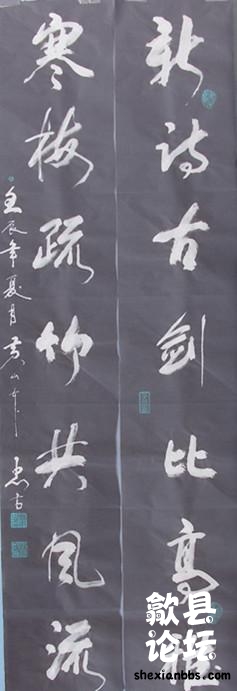 新诗古剑比高雅
寒梅疏竹共风流
壬辰年夏月黄山
歙县
论坛
shexianbbs.com